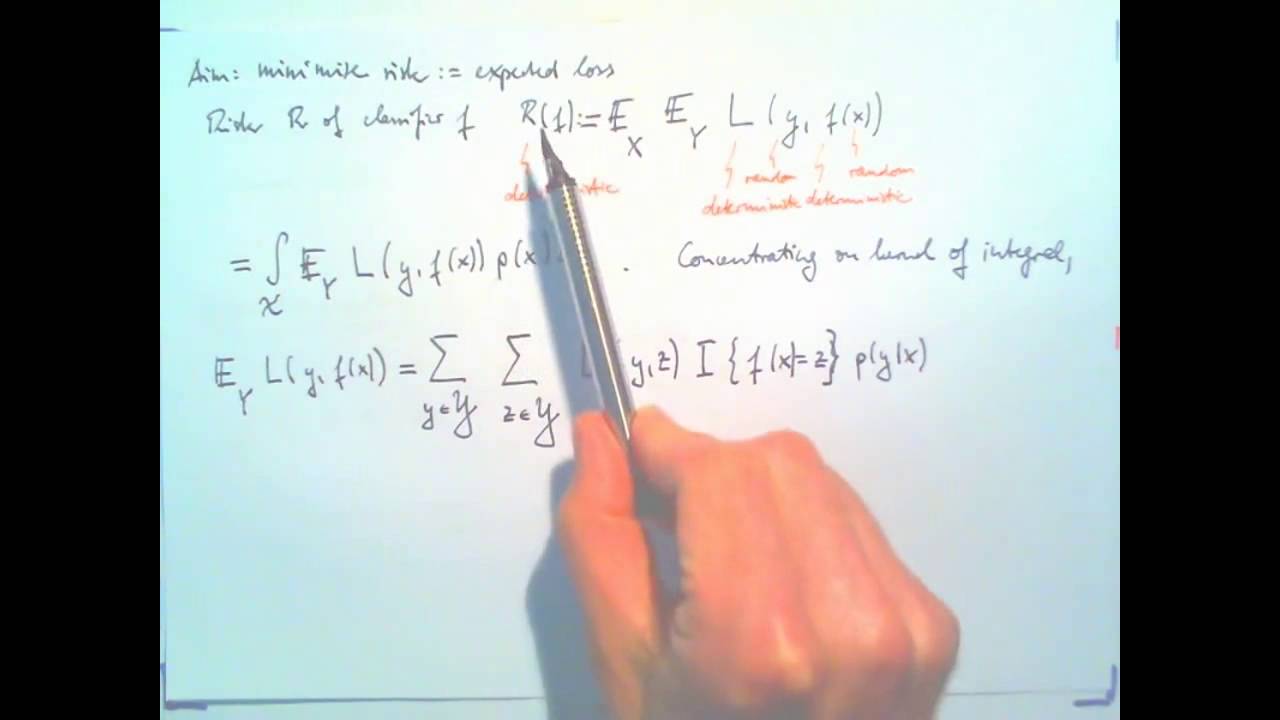 Aim: minimise risk := expected loss
Risk R of classifier f R(f) := 𝔼_X 𝔼_Y L(y, f(x))
random random
deterministic deterministic
= ∫_𝒳 𝔼_Y L(y, f(x)) p(x) . Concentrating on kernel of integral,
𝔼_Y L(y, f(x)) = ∑_{y∈𝒴} ∑_{z∈𝒴} (y,z) I {f(x)=z} p(y|x)